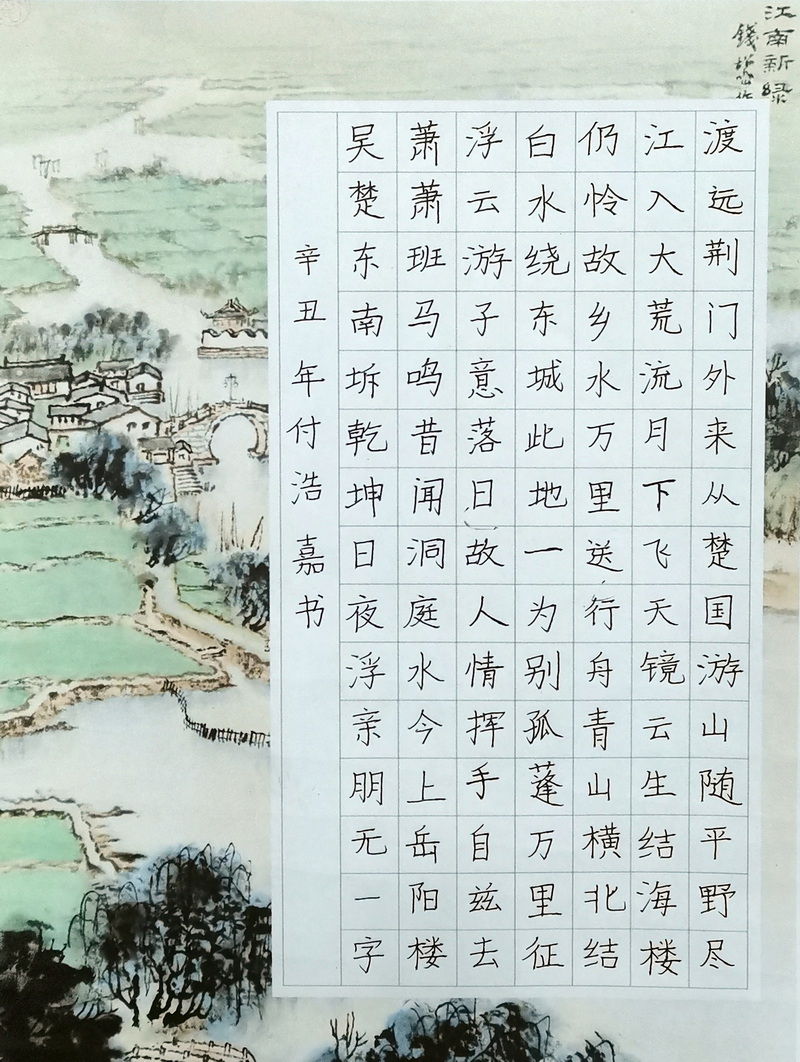 江南新绿
錢松嵒作
渡远荆门外来从楚国游山随平野尽
江入大荒流月下飞天镜云生结海楼
仍怜故乡水万里送行舟青山横北结
白水绕东城此地一为别孤蓬万里征
浮云游子意落日故人情挥手自兹去
萧萧班马鸣昔闻洞庭水今上岳阳楼
吴楚东南坼乾坤日夜浮亲朋无一字
辛丑年付浩嘉书